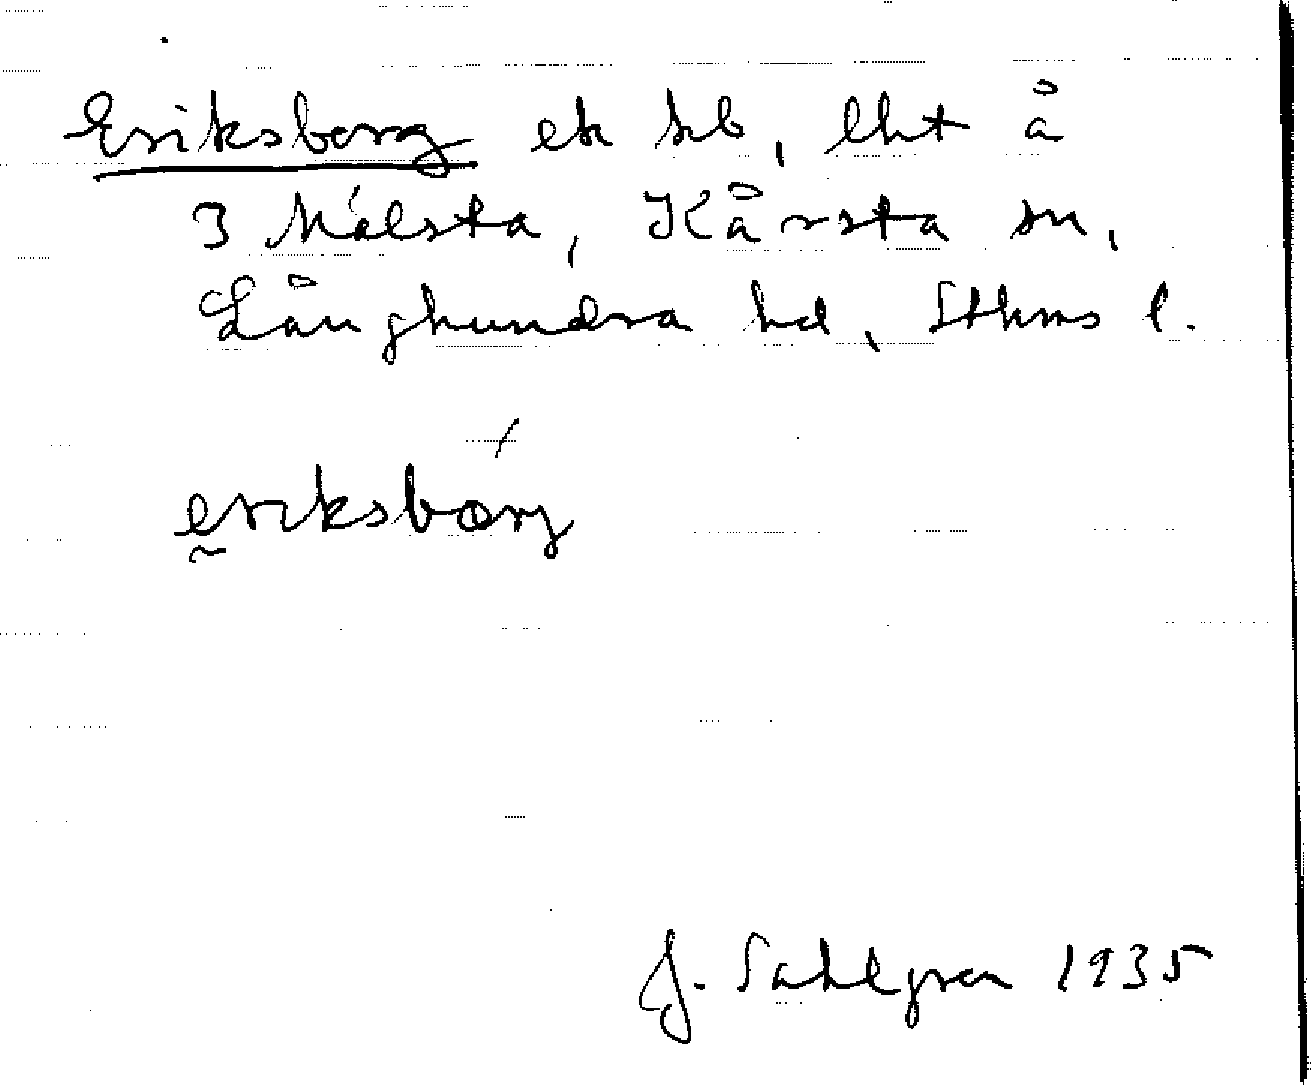 Eriksborg ek kb, lht å
3 Målsta, Kårsta sn,
Långhundra hd, Sthms l.
eriksborj
J. Sahlgren 1935